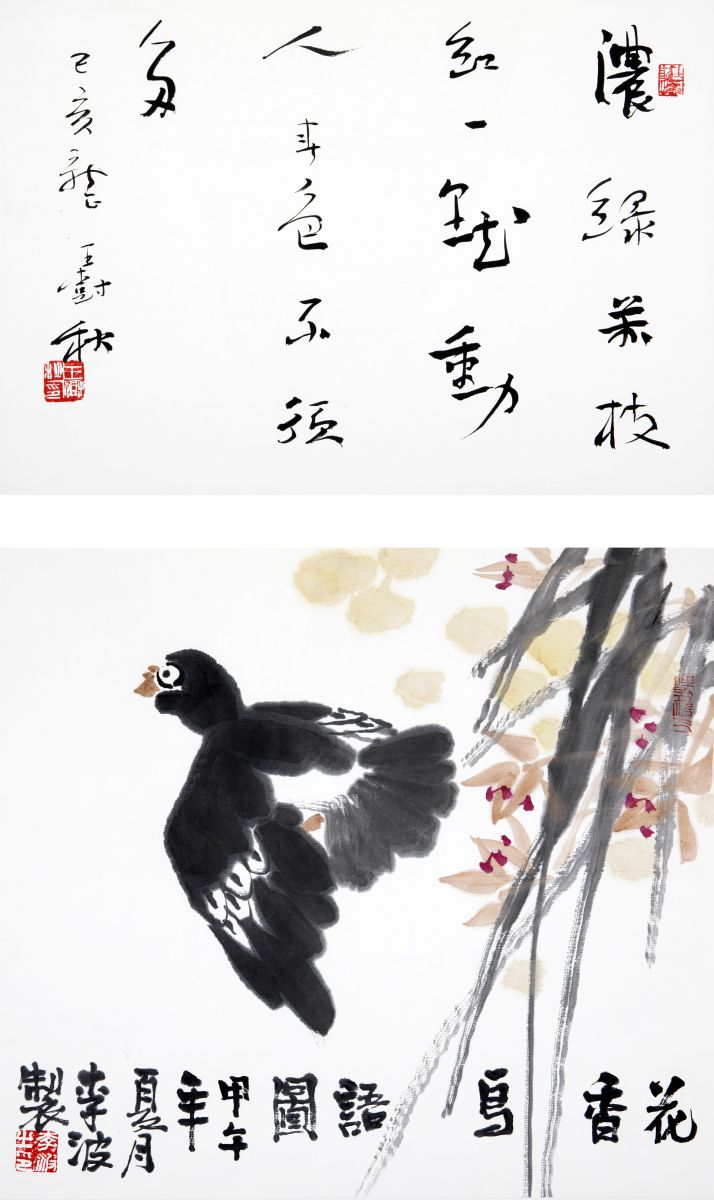 濃綠萬枝
紅一點動
人春色不須
多
己亥 王樹秋
花香鳥語圖
甲午
年
夏月
李波
製